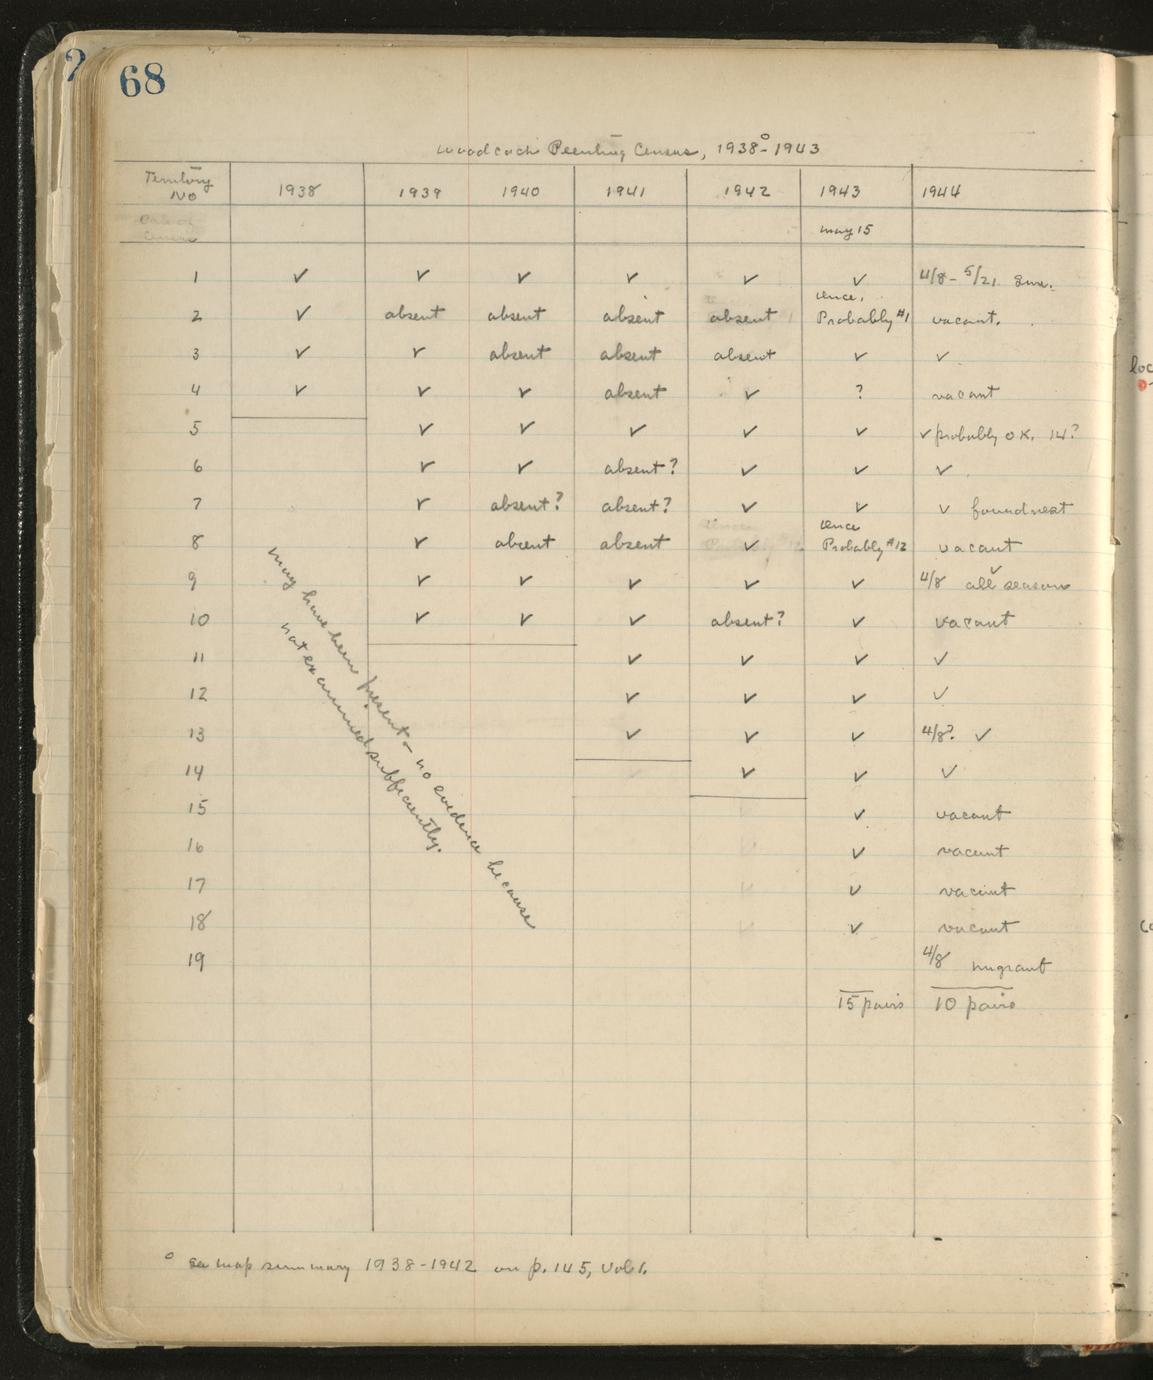 68
Woodcock Peenting Census, 1938°-1943
Territory No 1938 1939 1940 1941 1942 1943 1944
Date of Census May 15
1 ✓ ✓ ✓ ✓ ✓ ✓ 4/8-5/21
2 ✓ absent absent absent absent once, Probably #1 vacant.
3 ✓ ✓ absent absent absent ✓ ✓
4 ✓ ✓ ✓ absent ✓ ? vacant
5 ✓ ✓ ✓ ✓ ✓ ✓ probably OK. 14?
6 ✓ ✓ absent? ✓ ✓ ✓
7 ✓ absent? absent? ✓ ✓ ✓ found nest
8 ✓ absent absent ✓ once Probably #12 vacant
9 ✓ ✓ ✓ ✓ ✓ 4/8 all ✓ season
10 ✓ ✓ ✓ absent? ✓ vacant
11 ✓ ✓ ✓ ✓
12 ✓ ✓ ✓ ✓
13 ✓ ✓ ✓ 4/8? ✓
14 ✓ ✓ ✓
15 ✓ vacant
16 ✓ vacant
17 ✓ vacant
18 ✓ vacant
19 4/8 migrant
15 pairs 10 pairs
may have been present - no evidence because
not examined sufficiently.
° see map summary 1938-1942 on p. 145, Vol. 1.